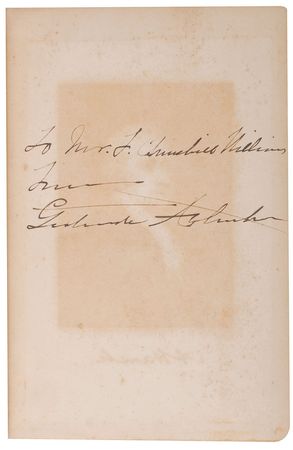 To Mr. F. Churchill Williams
From
Gertrude Atherton